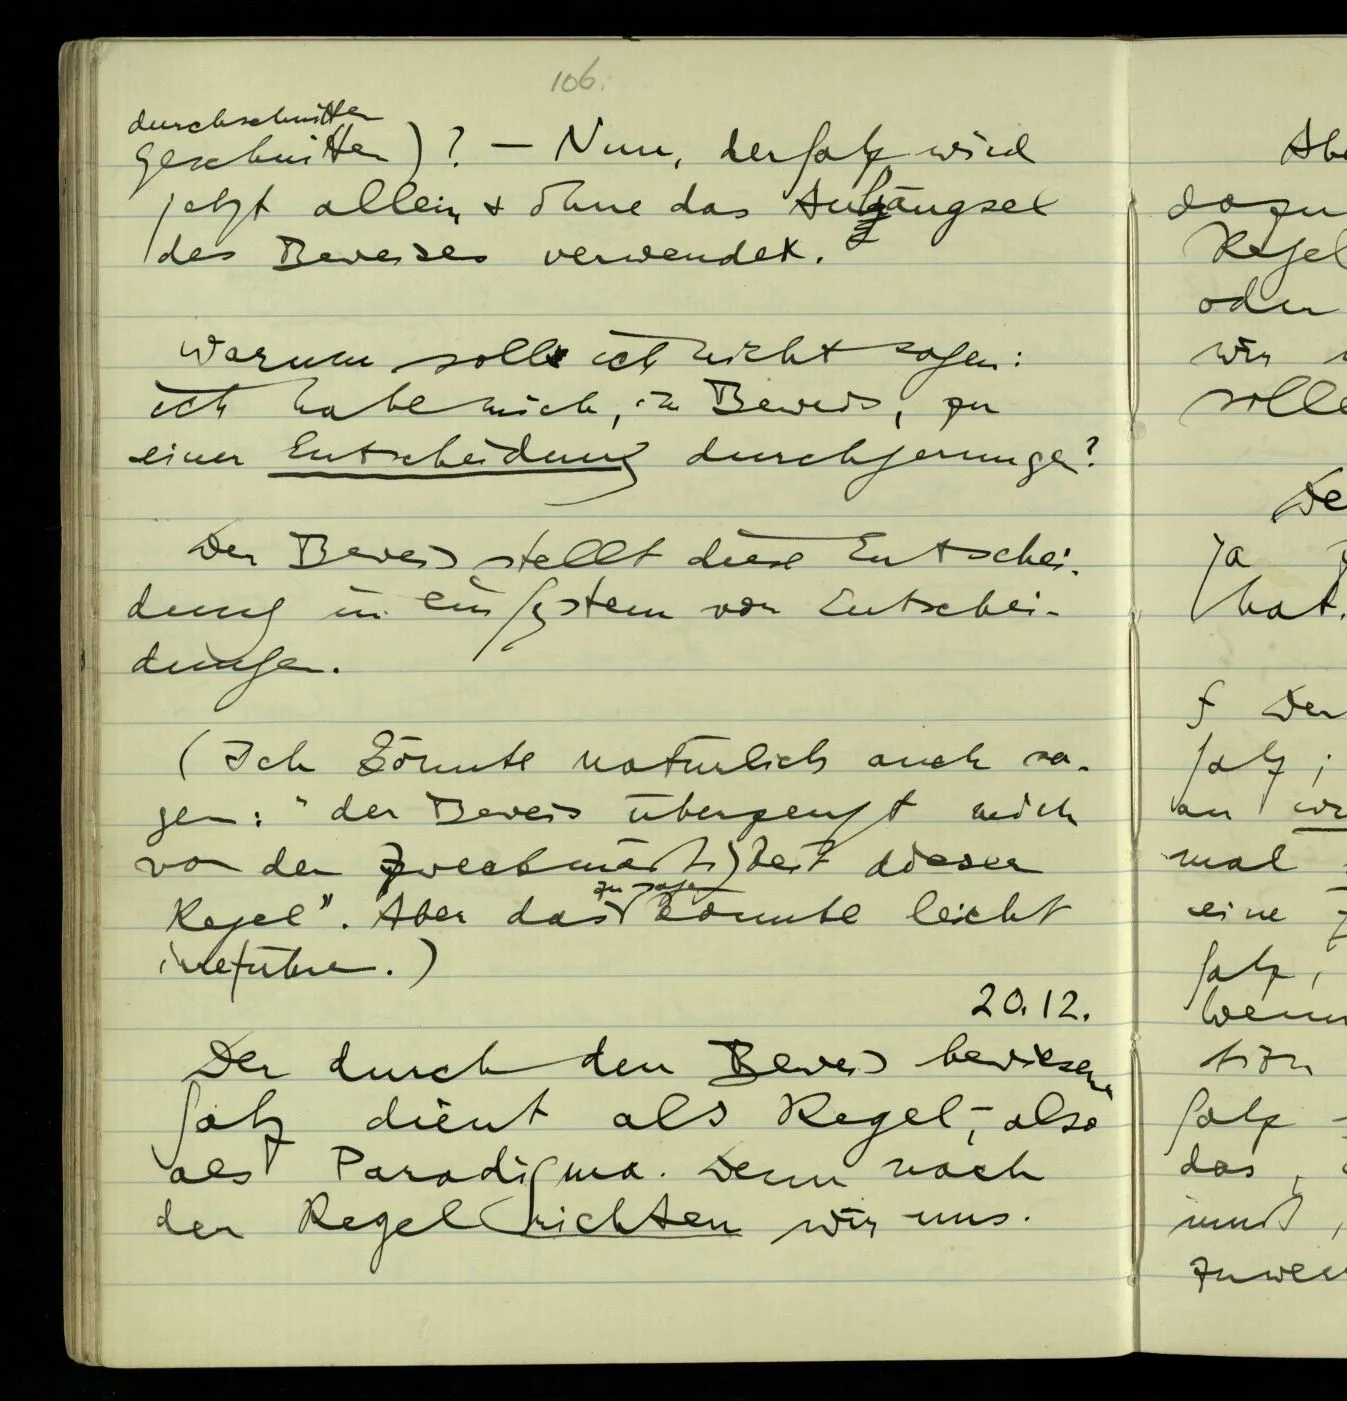 106.
durchschnitten
geschnitten)? — Nun, der Satz wird
jetzt allein, + ohne das Anhängsel
des Beweises verwendet.
Warum sollte ich nicht sagen:
ich habe mich, im Beweis, zu
einer Entscheidung durchgerungen?
Der Beweis stellt diese Entschei-
dung in ein System von Entschei-
dungen.
(Ich könnte natürlich auch sa-
gen: "der Beweis überzeugt mich
von der Zweckmäßigkeit dieser
zu sagen
Regel". Aber das könnte leicht
irreführen.)
20.12.
Der durch den Beweis bewiesene
Satz dient als Regel, – also
als Paradigma. Denn nach
der Regel richten wir uns.
Abe
dazu
Regel
oder
wir
solle
De
ja
hat.
∫ Der
Satz;
an
mal
eine
Satz,
wenn
tion
Satz
das,
muß,
zuwei